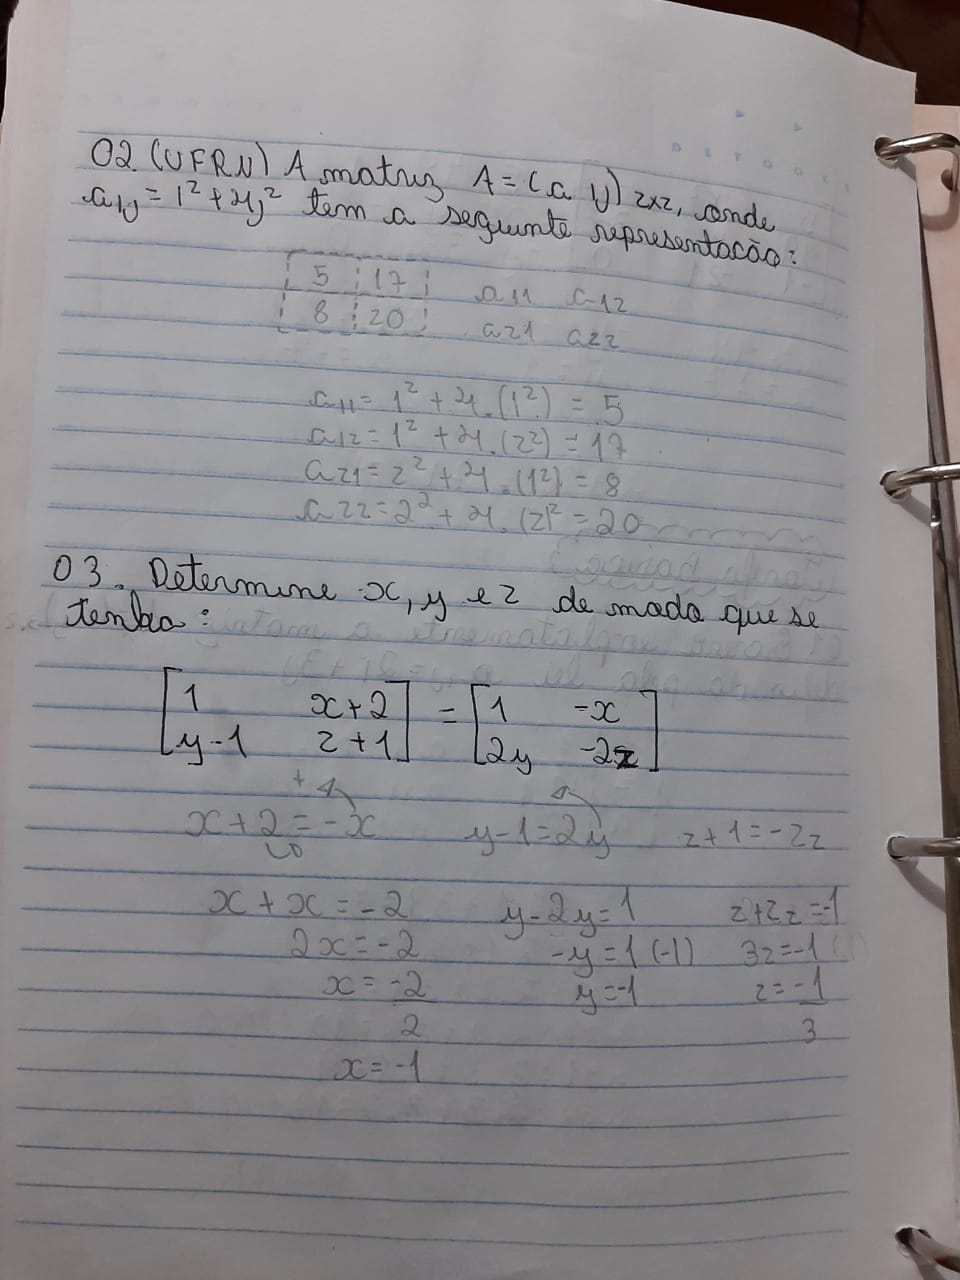 02. (UFRN) A matriz A = (a ij) 2x2, onde
aij = i² + 4j² tem a seguinte representacão:
5 17 a11 a12
8 20 a21 a22
a11 = 1² + 4.(1²) = 5
a12 = 1² + 4.(2²) = 17
a21 = 2² + 4.(1²) = 8
a22 = 2² + 4.(2)² = 20
03. Determine x, y e z de modo que se
tenha:
[1 x+2] = [1 -x]
[y-1 z+1] [2y -2z]
+
x+2 = -x y-1 = 2y z+1 = -2z
x + x = -2 y-2y = 1 z+2z = -1
2x = -2 -y = 1 (-1) 3z = -1
x = -2 y = -1 z = -1
2 3
x = -1